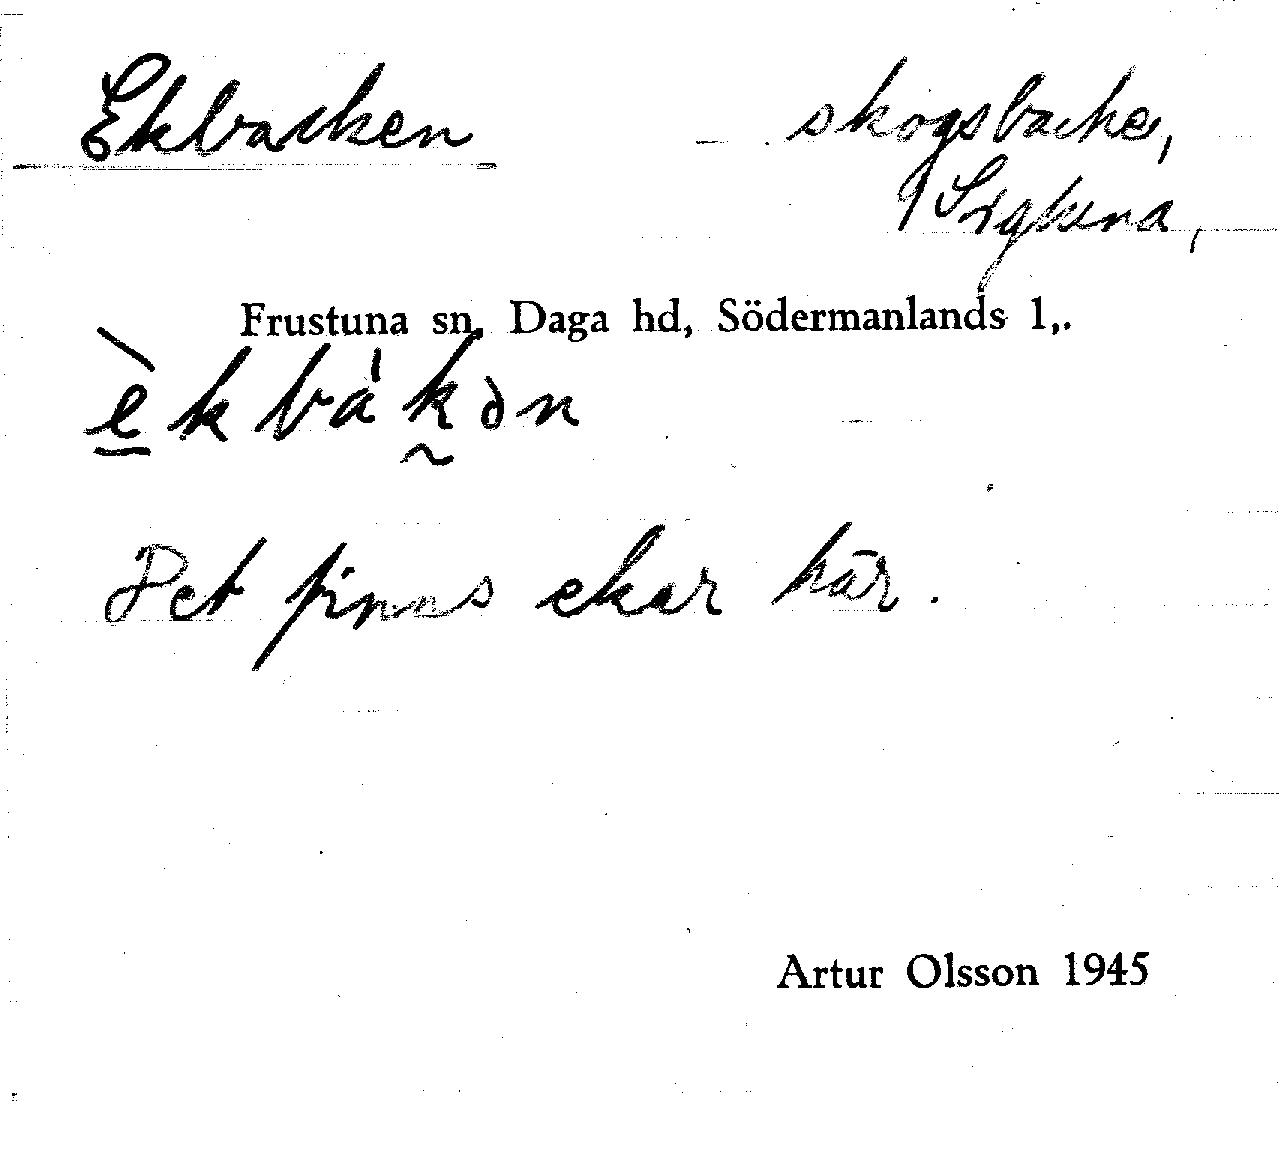 Ekbacken - skogsbacke,
Sigtuna,
Frustuna sn, Daga hd, Södermanlands l,.
è̲kbák̰ən
Det finns ekar här.
Artur Olsson 1945